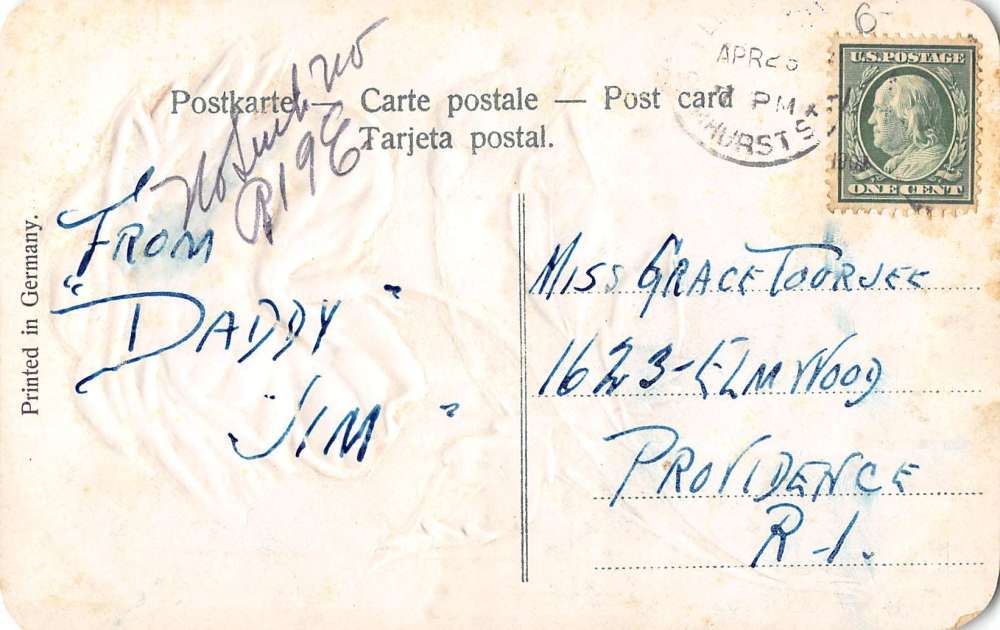 Postkarte — Carte postale — Post card
Tarjeta postal.
Printed in Germany.
No Such no
R19E
APR 26
PM
HURST ST
6
U.S. POSTAGE
ONE CENT
FROM
"DADDY"
"JIM"
MISS GRACE TOORJEE
1623-ELMWOOD
PROVIDENCE
R-I.